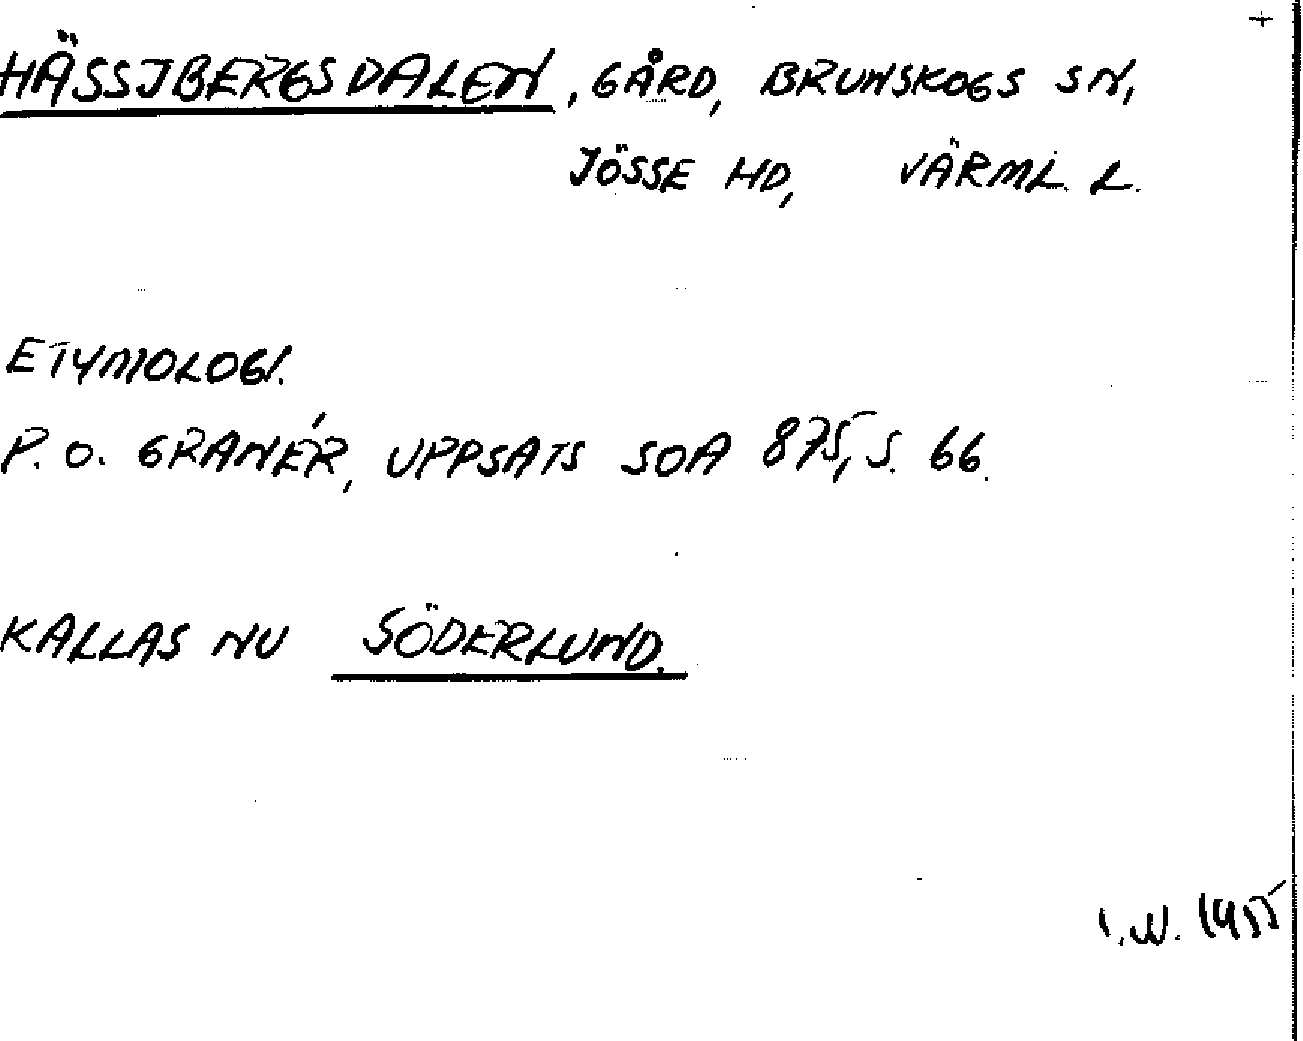 +
HÄSSJBERGSDALEN, GÅRD, BRUNSKOGS SN,
JÖSSE HD, VÄRML. L.
ETYMOLOGI.
P. O. GRANÉR, UPPSATS SOA 875, S. 66.
KALLAS NU SÖDERLUND.
I. W. 1955